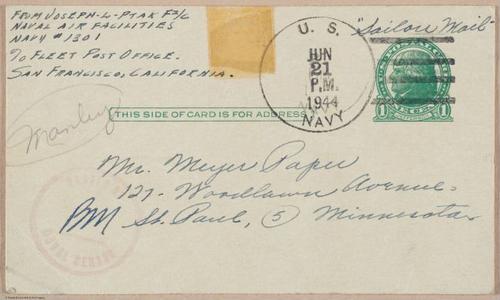 FROM JOSEPH-L-PTAK F2/C
NAVAL AIR FACILITIES
NAVY #1301
℅ FLEET POST OFFICE.
SAN FRANCISCO, CALIFORNIA.
"Sailors Mail"
U. S.
JUN
21
P.M.
1944
NAVY
1
THIS SIDE OF CARD IS FOR ADDRESS
Manley
Mr. Meyer Paper
127- Woodlawn Avenue-
St. Paul, (5) Minnesota.
NAVAL CENSOR